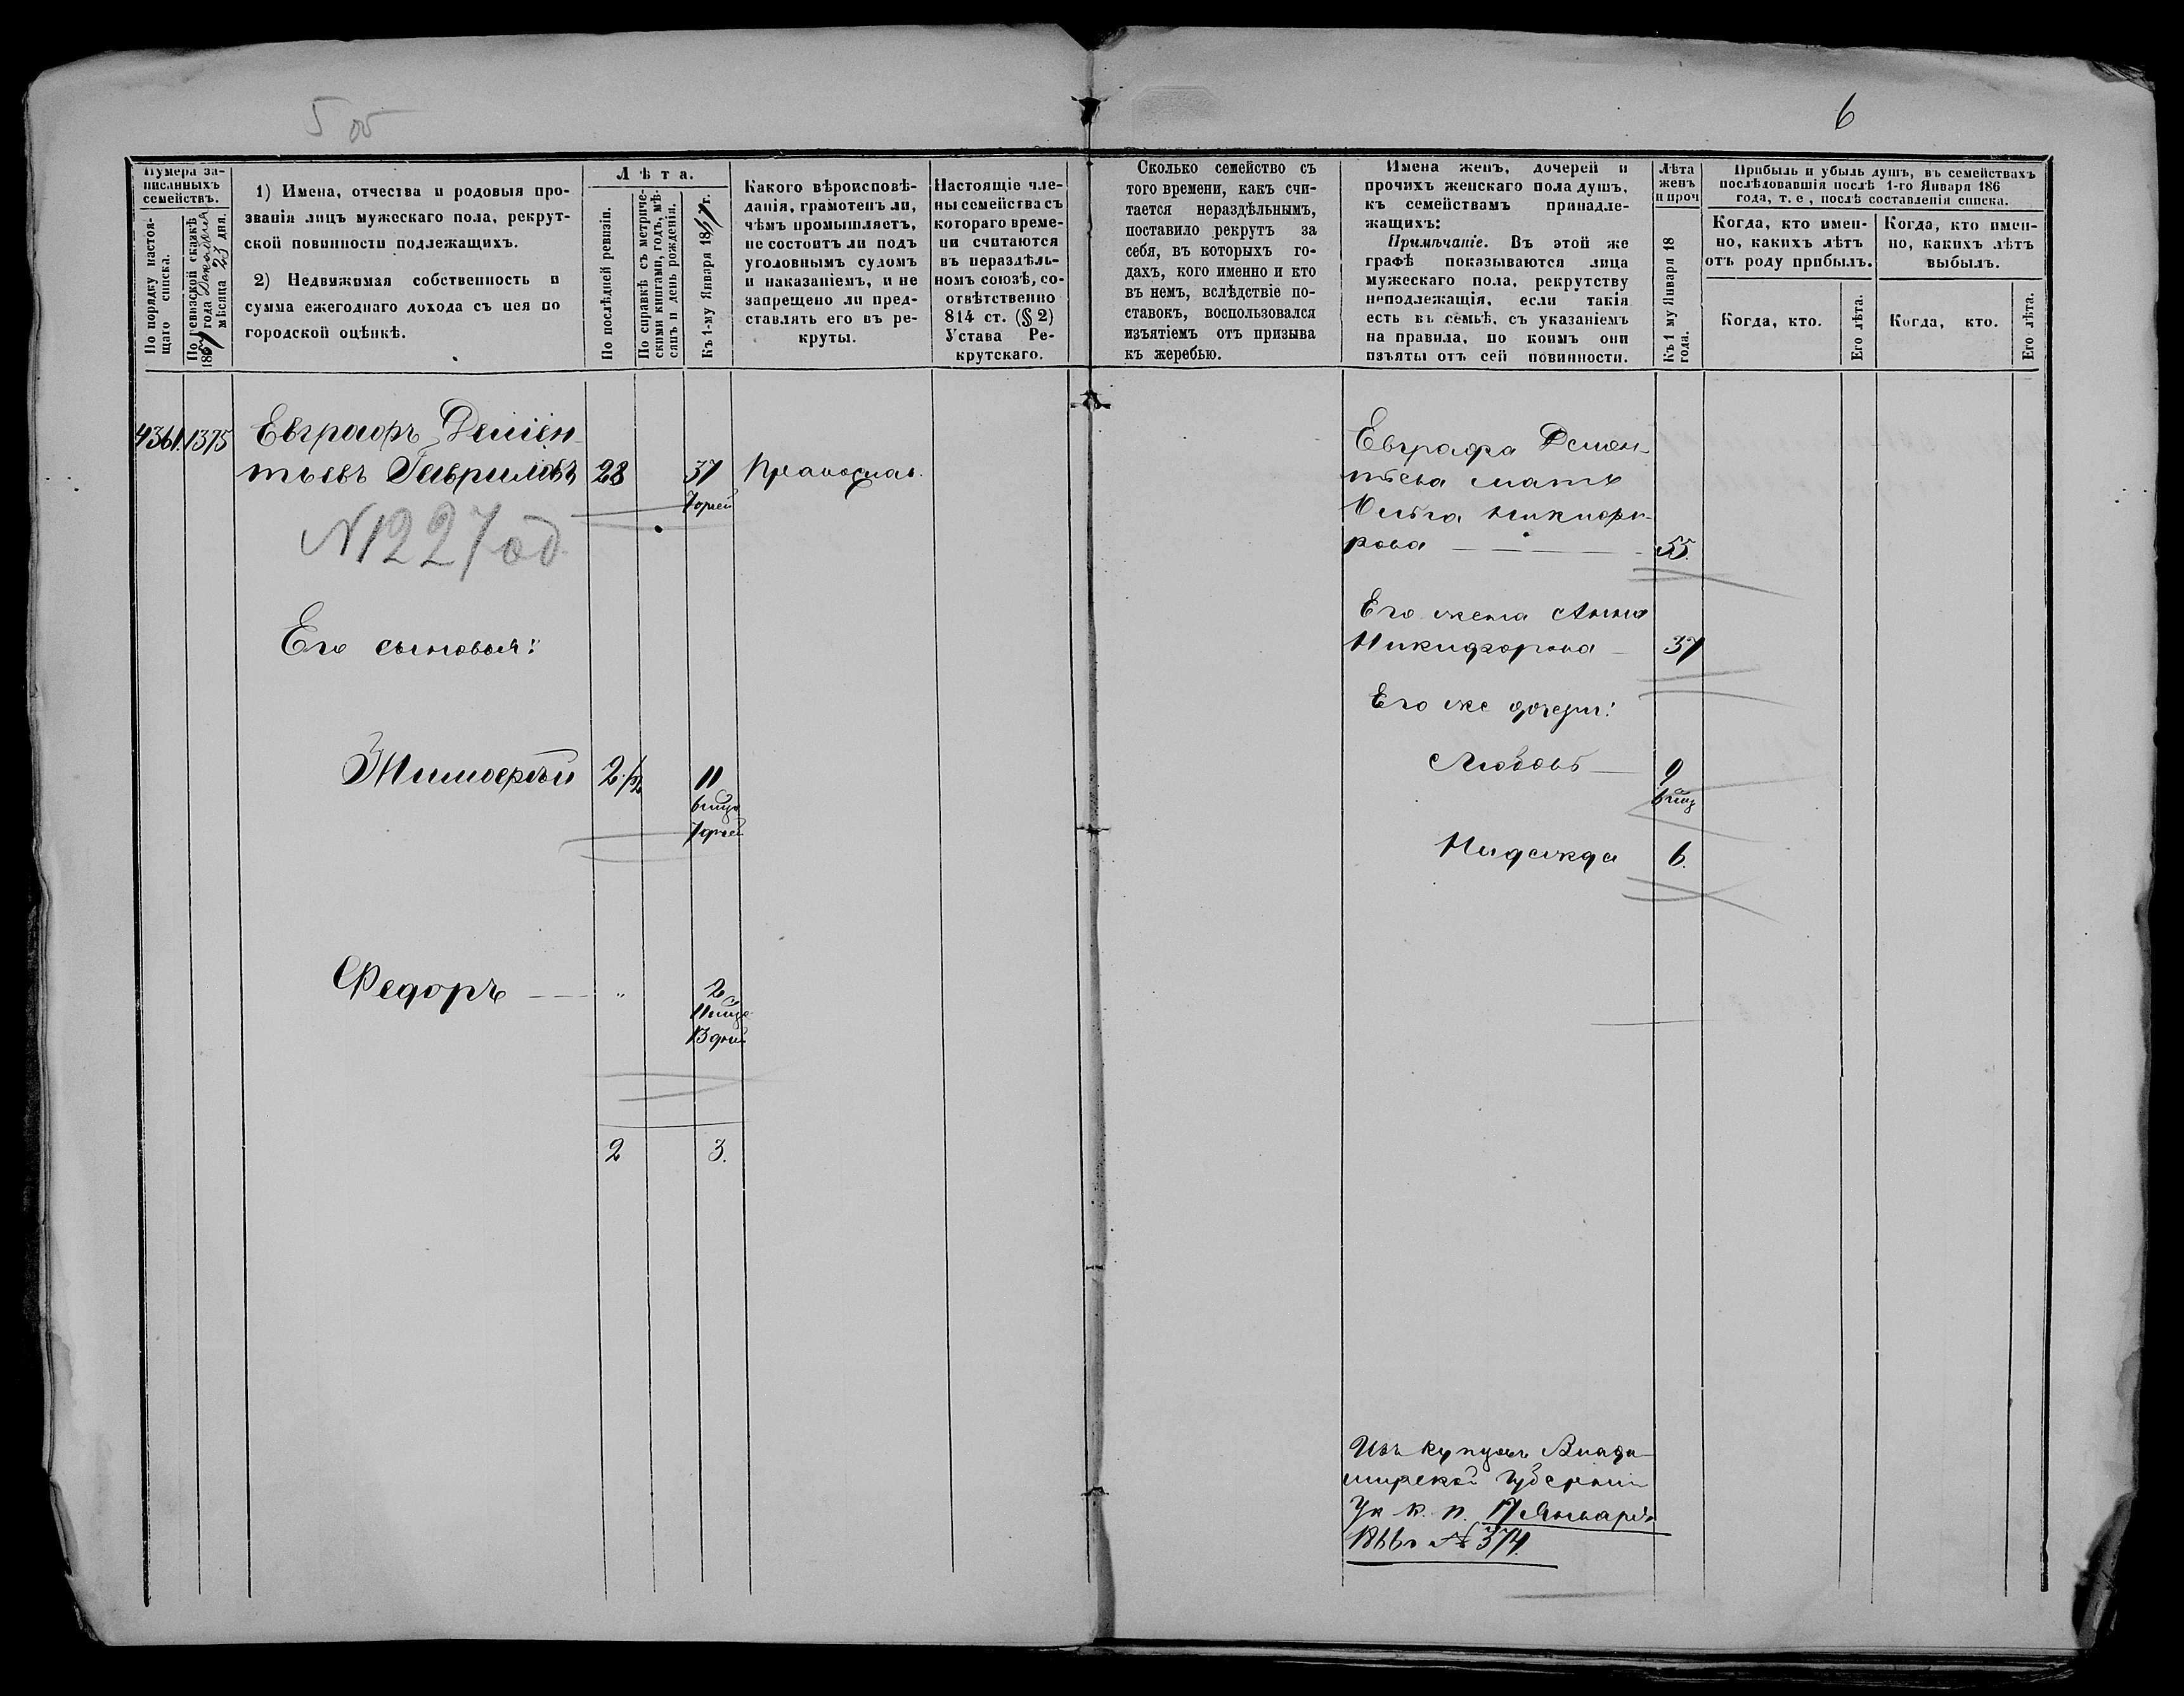 5 об
6
Нумера за-
писанныхъ
семействъ.
По порядку настоя-
щаго списка.
По ревизской сказкѣ
186 года мѣсяца 23 дня.
1) Имена, отчества и родовыя про-
званія лицъ мужескаго пола, рекрут-
ской повинности подлежащихъ.
2) Недвижимая собственность и
сумма ежегоднаго дохода съ нея по
городской оцѣнкѣ.
Лѣта.
По послѣдней ревизіи.
По справкѣ съ метриче-
скими книгами, годъ, мѣ-
сяцъ и день рожденія.
Къ 1-му Января 1867 г.
Какого вѣроисповѣ-
данія, грамотенъ ли,
чѣмъ промышляетъ,
не состоитъ ли подъ
уголовнымъ судомъ
и наказаніемъ, и не
запрещено ли пред-
ставлять его въ ре-
круты.
Настоящіе чле-
ны семейства съ
котораго време-
ни считаются
въ нераздѣль-
номъ союзѣ, со-
отвѣтственно
814 ст. (§ 2)
Устава Ре-
крутскаго.
Сколько семейство съ
того времени, какъ счи-
тается нераздѣльнымъ,
поставило рекрутъ за
себя, въ которыхъ го-
дахъ, кого именно и кто
въ немъ, вслѣдствіе по-
ставокъ, воспользовался
изъятіемъ отъ призыва
къ жеребью.
Имена женъ, дочерей и
прочихъ женскаго пола душъ,
къ семействамъ принадле-
жащихъ:
Примѣчаніе. Въ этой же
графѣ показываются лица
мужескаго пола, рекрутству
неподлежащія, если такія
есть въ семьѣ, съ указаніемъ
на правила, по коимъ они
изъяты отъ сей повинности.
Лѣта
женъ
и проч
Къ 1 му Января 18
года.
Прибыль и убыль душъ, въ семействахъ
послѣдовавшія послѣ 1-го Января 186
года, т. е., послѣ составленія списка.
Когда, кто имен-
но, какихъ лѣтъ
отъ роду прибылъ.
Когда, кто имен-
но, какихъ лѣтъ
выбылъ.
Когда, кто.
Его лѣта.
Когда, кто.
Его лѣта.
4361. 1375 Евграфъ Демен-
тьевъ Гавриловъ 28 37 Православ.
7 дней
N 1227 од
Его сыновья:
Тимофей 2 1/2 11
6 мцъ
7 дней
Федоръ — „ 2
11 мцъ
13 дней
2 3.
Евграфа Демен-
тьева мать
Ольга Никифо-
рова — 55.
Его жена Анна
Никифорова — 37
Его же дочери:
Любовь — 9
6 мцъ
Надежда 6.
Изъ купцовъ Влади-
мирской губерніи
Ук. К. П. 17 Января
1866 г № 374.